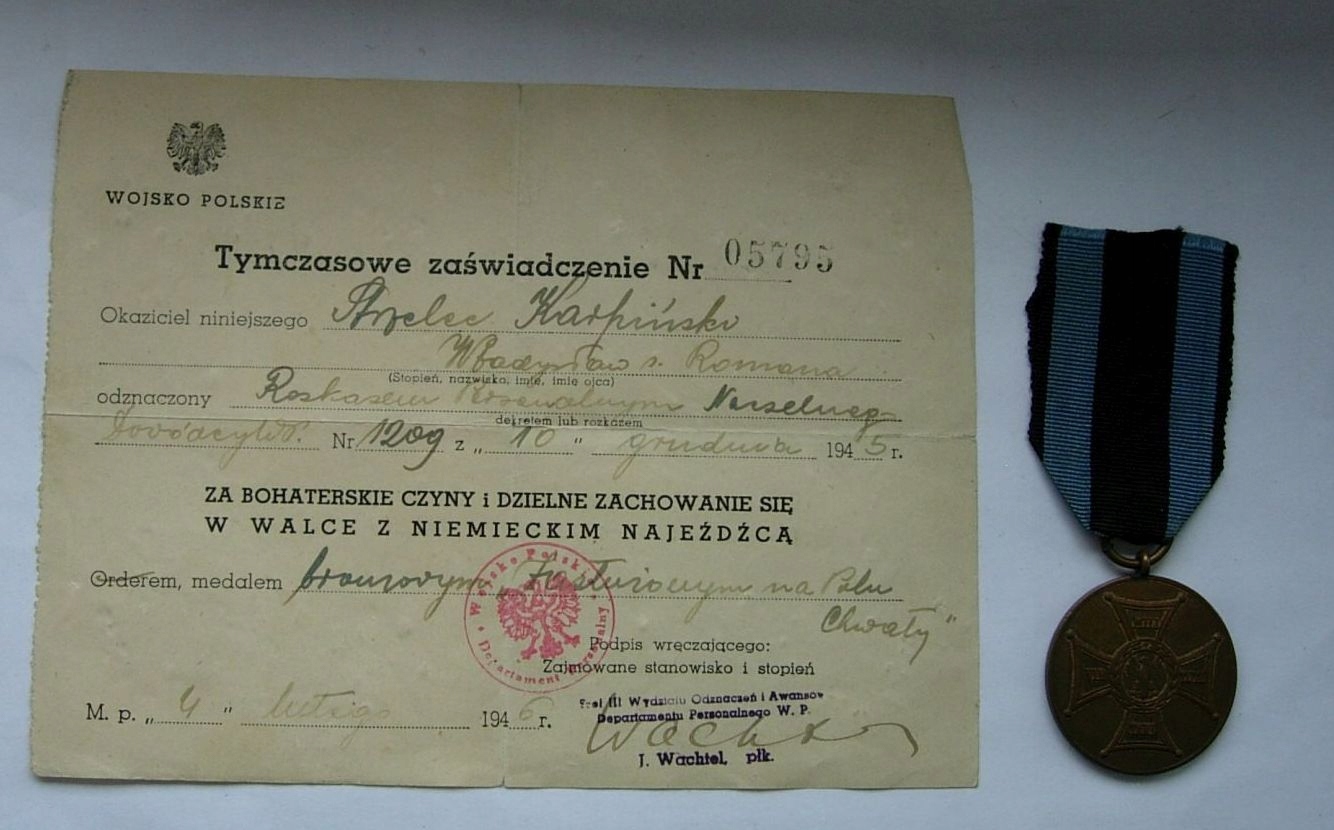 WOJSKO POLSKIE
Tymczasowe zaświadczenie Nr 05795
Okaziciel niniejszego Strzelec Karpiński
Władysław s. Romana
(Stopień, nazwisko, imię, imię ojca)
odznaczony Roskasem Personalnym Naczelnego
dekretem lub rozkazem
Dowódcy W.P. Nr 1209 z „10" grudnia 1945 r.
ZA BOHATERSKIE CZYNY i DZIELNE ZACHOWANIE SIĘ
W WALCE Z NIEMIECKIM NAJEŹDŹCĄ
Orderem, medalem bronzowym „Zasłużonym na Polu
Chwały"
Wojsko Polskie
Departament Personalny
Podpis wręczającego:
Zajmowane stanowisko i stopień
M. p. „4" lutego 1946 r.
Szef III Wydziału Odznaczeń i Awansów
Departamentu Personalnego W. P.
Wachtel
J. Wachtel, płk.